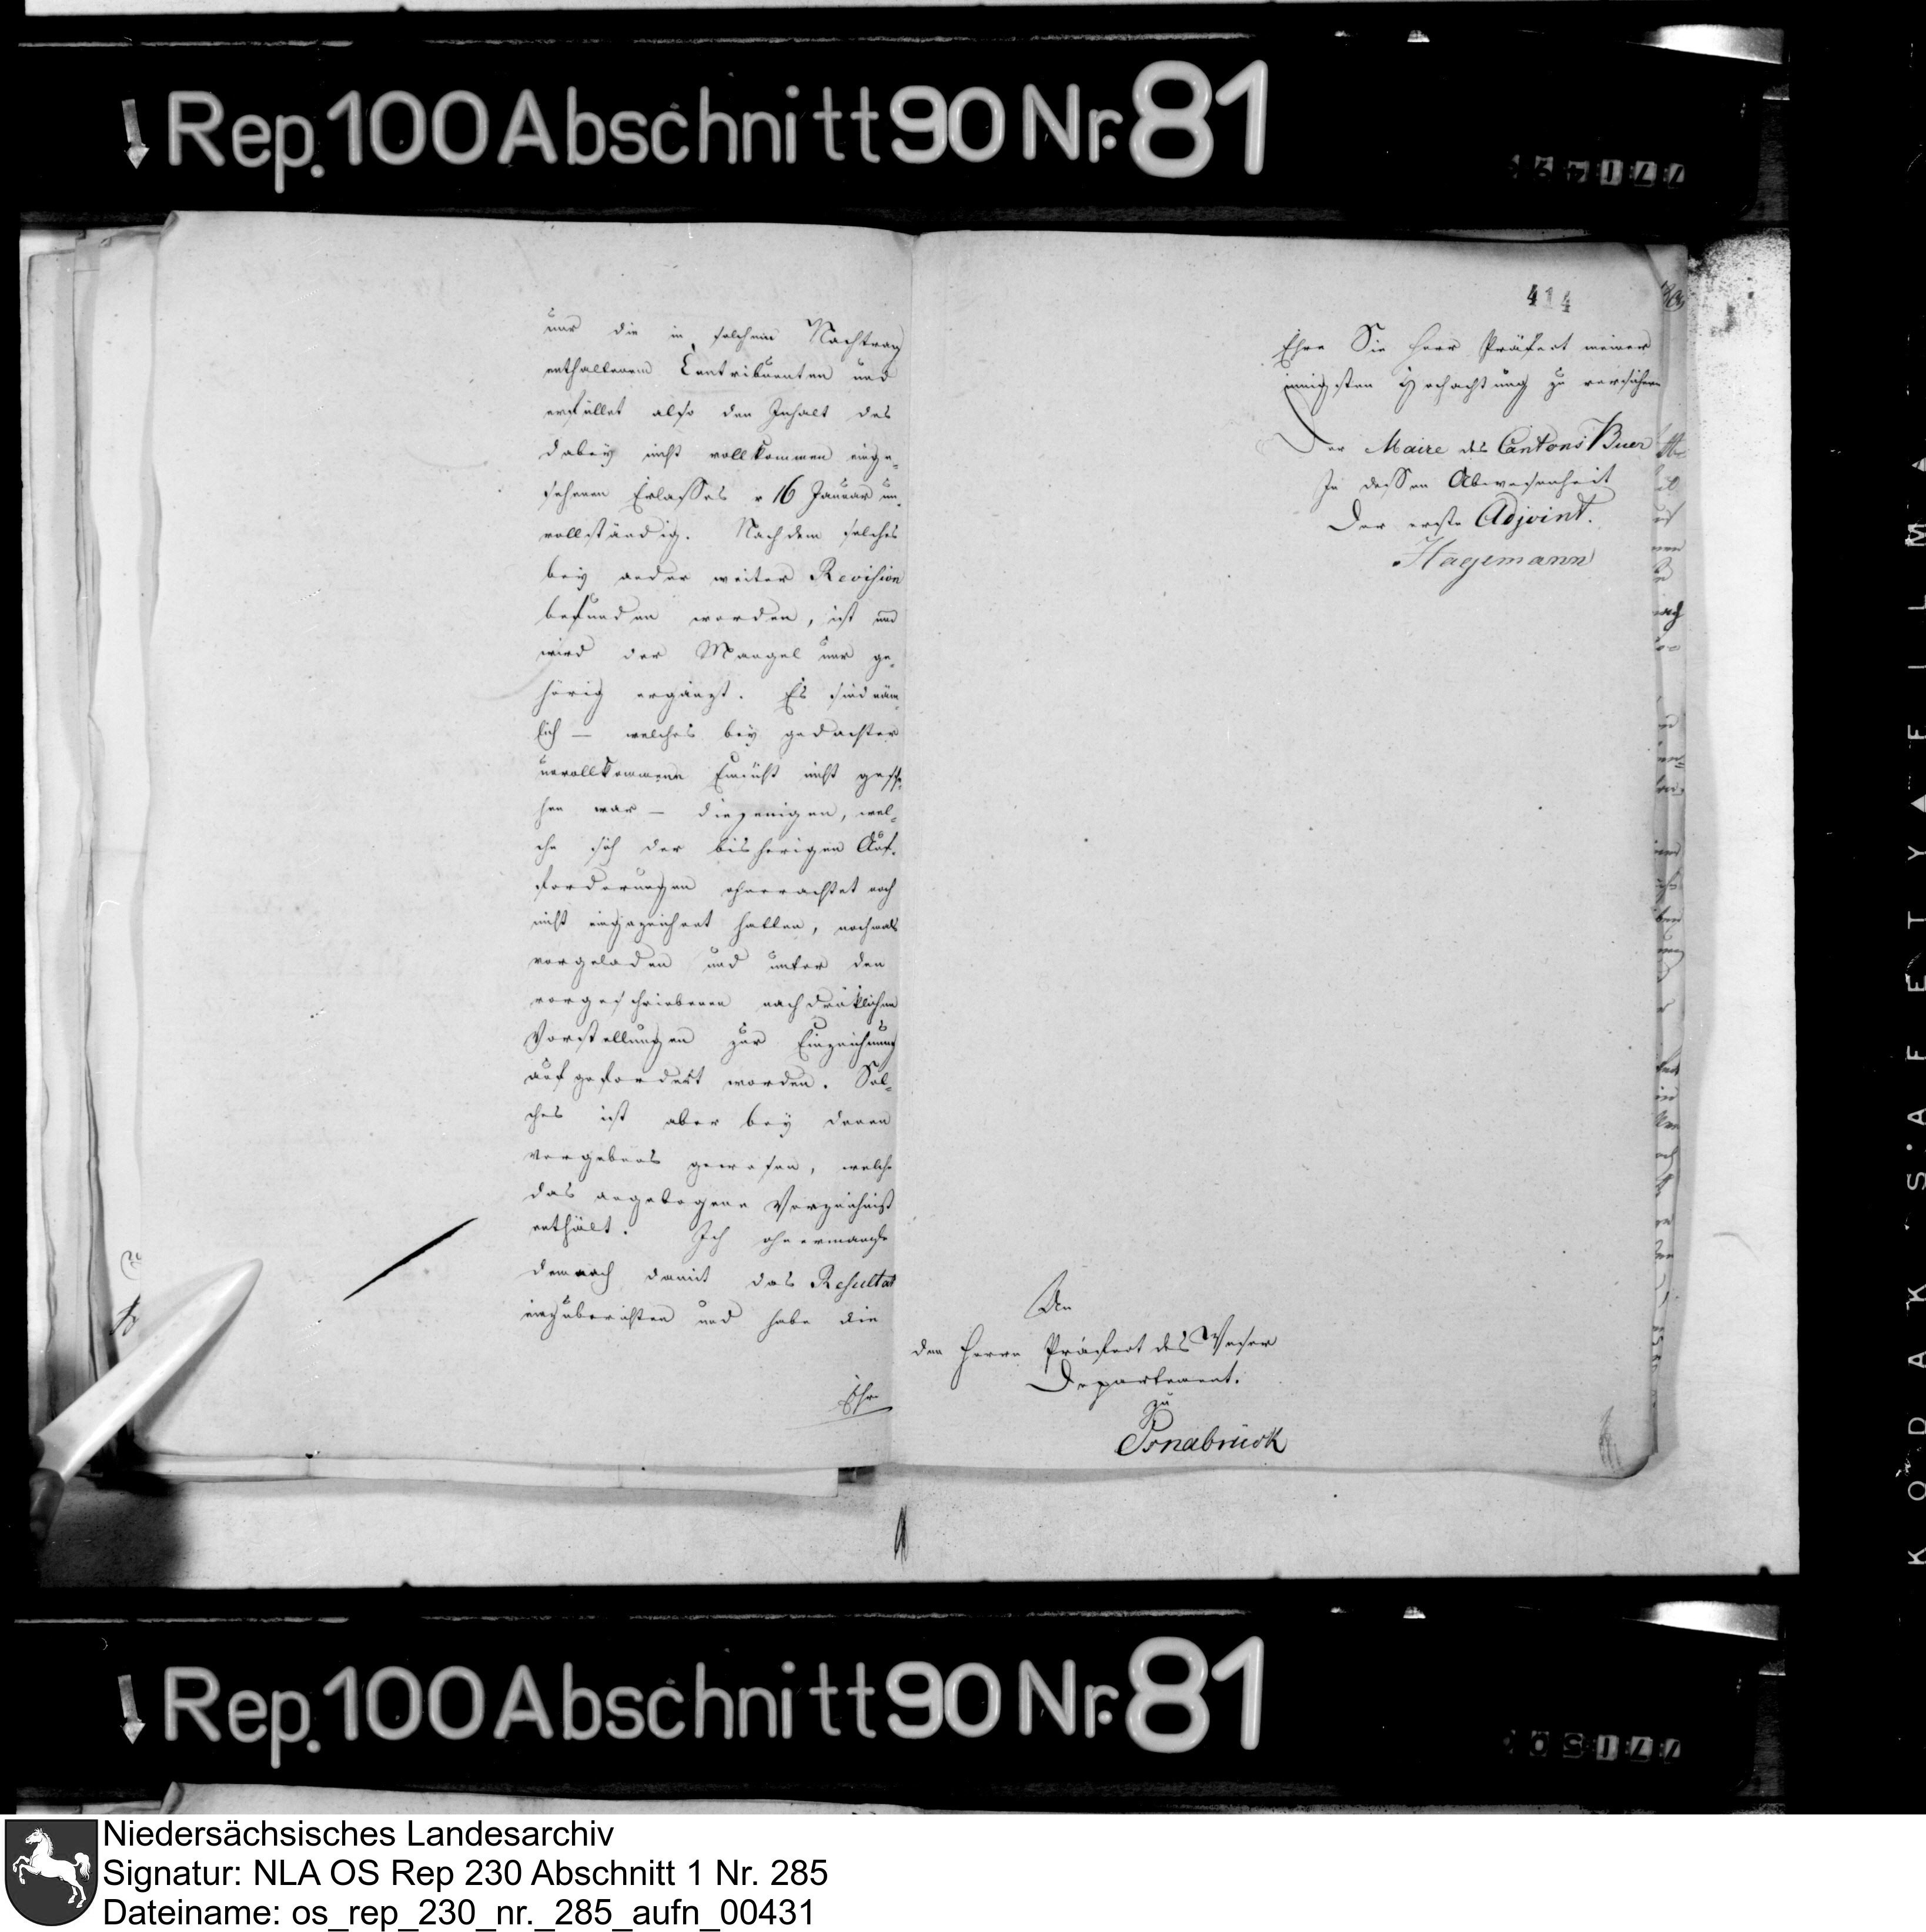 Rep. 100 Abschnitt 90 Nr. 81
nur die in solchem Nachtrag
enthaltenen Contribuenten und
erfüllet also den Inhalt des
dabey nicht vollkommen einge-
sehenen Erlasses v 16 Januar un-
vollständig. Nachdem solches
bey ander weiter Revision
befunden worden, ist und
wird der Mangel nur ge-
hörig ergänzt. Es sind näm-
lich — welches bey gedachter
unvollkommene Einsicht nicht gesche-
hen war — diejenigen, wel-
che sich der bisherigen Auf-
forderungen ohnerachtet noch
nicht eingezeichnet hatten, nochmals
vorgeladen und unter den
vorgeschriebenen nachdrüklichen
Vorstellungen zur Einzeichnung
aufgefordert worden. Sol-
ches ist aber bey denen
vergebens gewesen, welche
das angebogene Verzeichniß
enthält. Ich ohnermangle
demnach damit das Resultat
einzuberichten und habe die
Ehre
414
Ehre Sie Herr Präfect meiner
innigsten Hochachtung zu versichern
Der Maire des Cantons Buer
In dessen Abwesenheit
Der erste Adjoint.
Hagemann
An
den Herrn Präfect des Weser
Departement.
zu
Osnabrück
Rep. 100 Abschnitt 90 Nr. 81
KODAK SAFETY FILM
Niedersächsisches Landesarchiv
Signatur: NLA OS Rep 230 Abschnitt 1 Nr. 285
Dateiname: os_rep_230_nr._285_aufn_00431